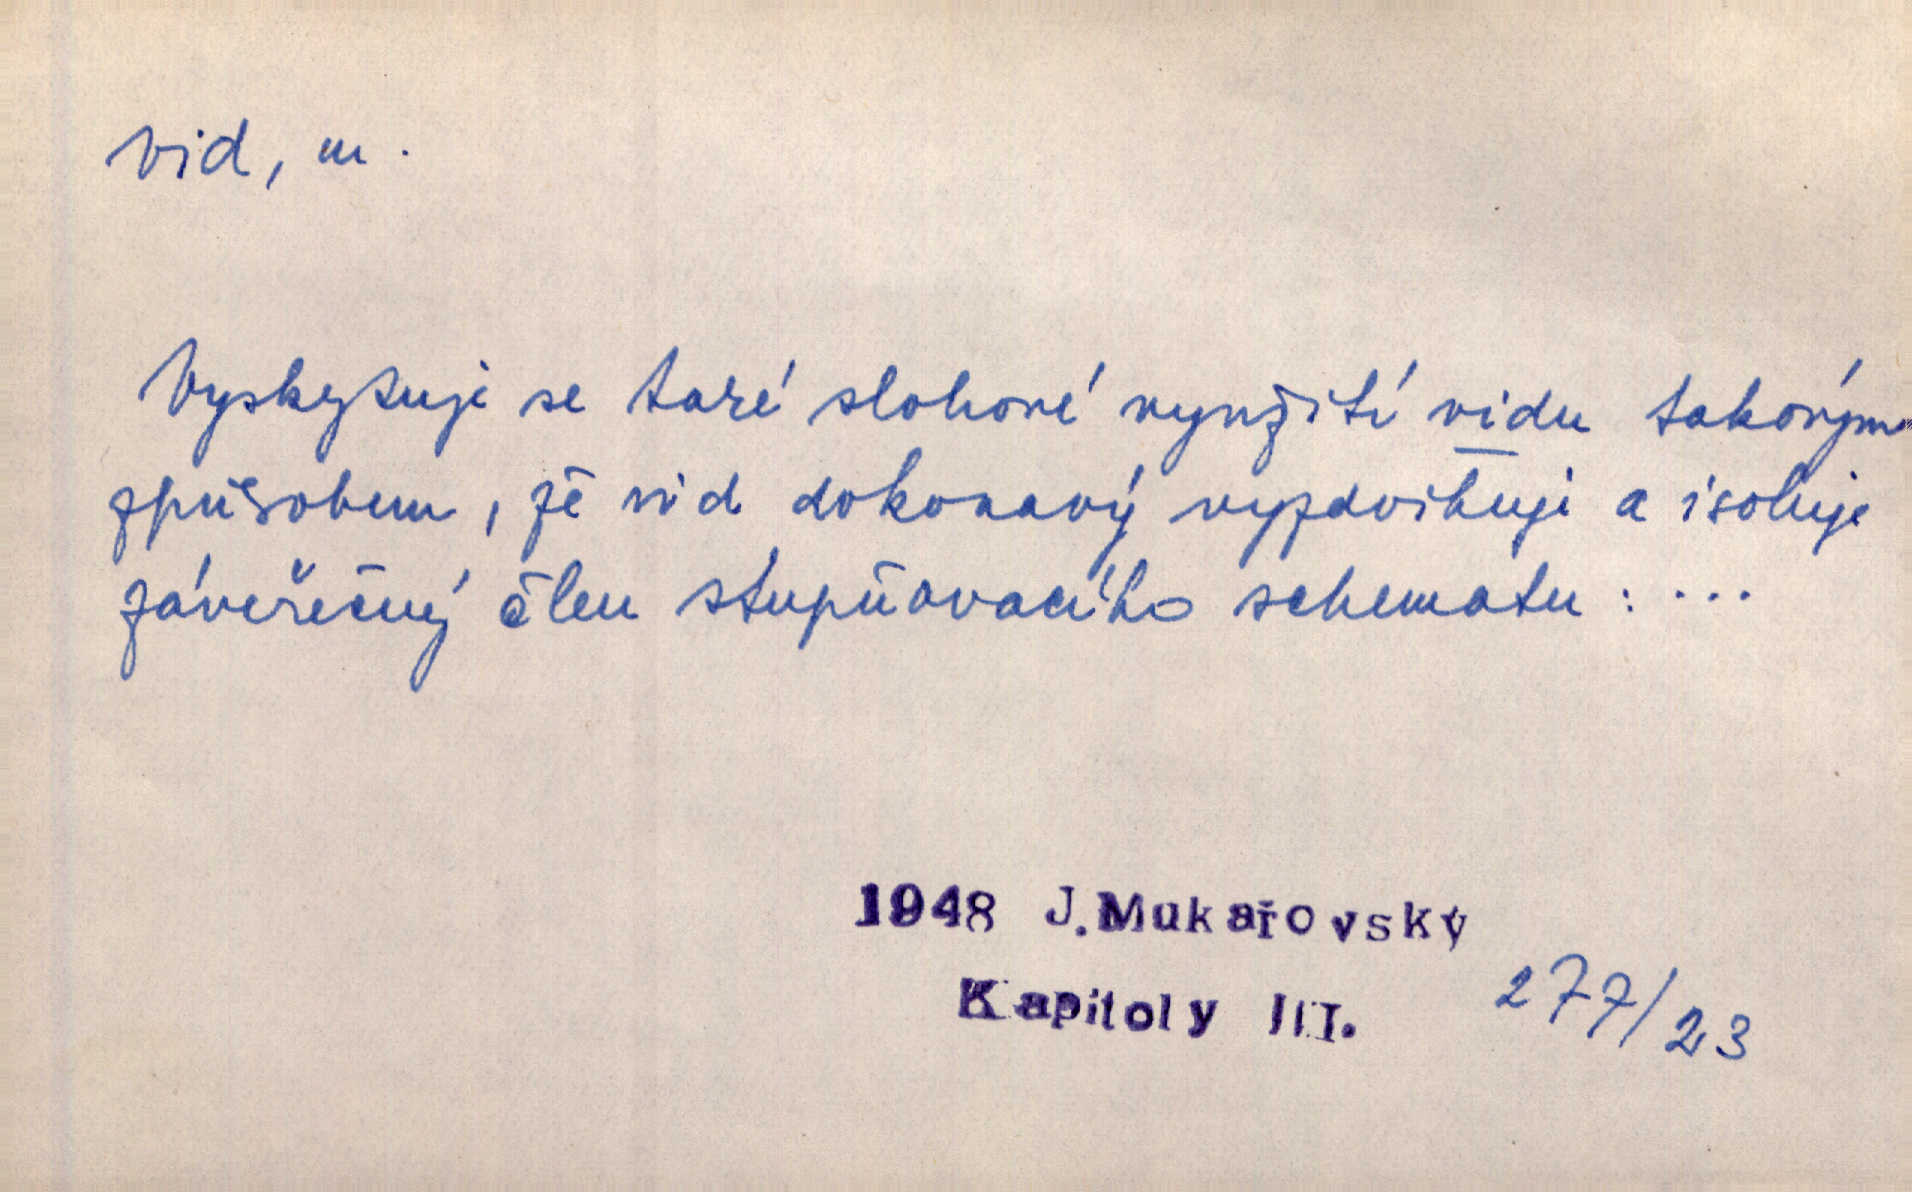 vid, m.
Vyskytuje se také slohové využití vidu takovým
způsobem, že vid dokonavý vyzdvihuje a isoluje
závěrečný člen stupňovacího schematu : ...
1948 J.Mukařovský
Kapitoly III.
277/23